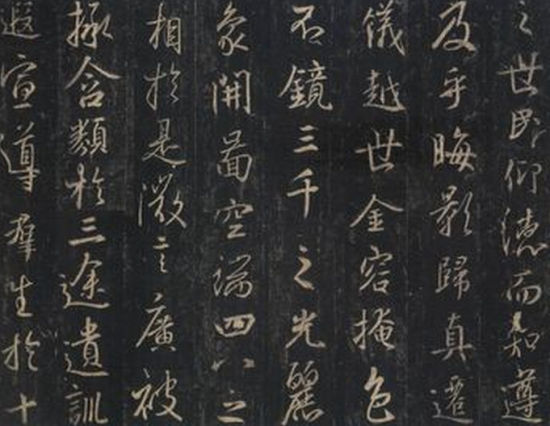 之世民仰德而知遵
及乎晦影歸真遷
儀越世金容掩色
不鏡三千之光麗
象開圖空端四八之
相於是微言廣被
拯含類於三途遺訓
遐宣導羣生於十